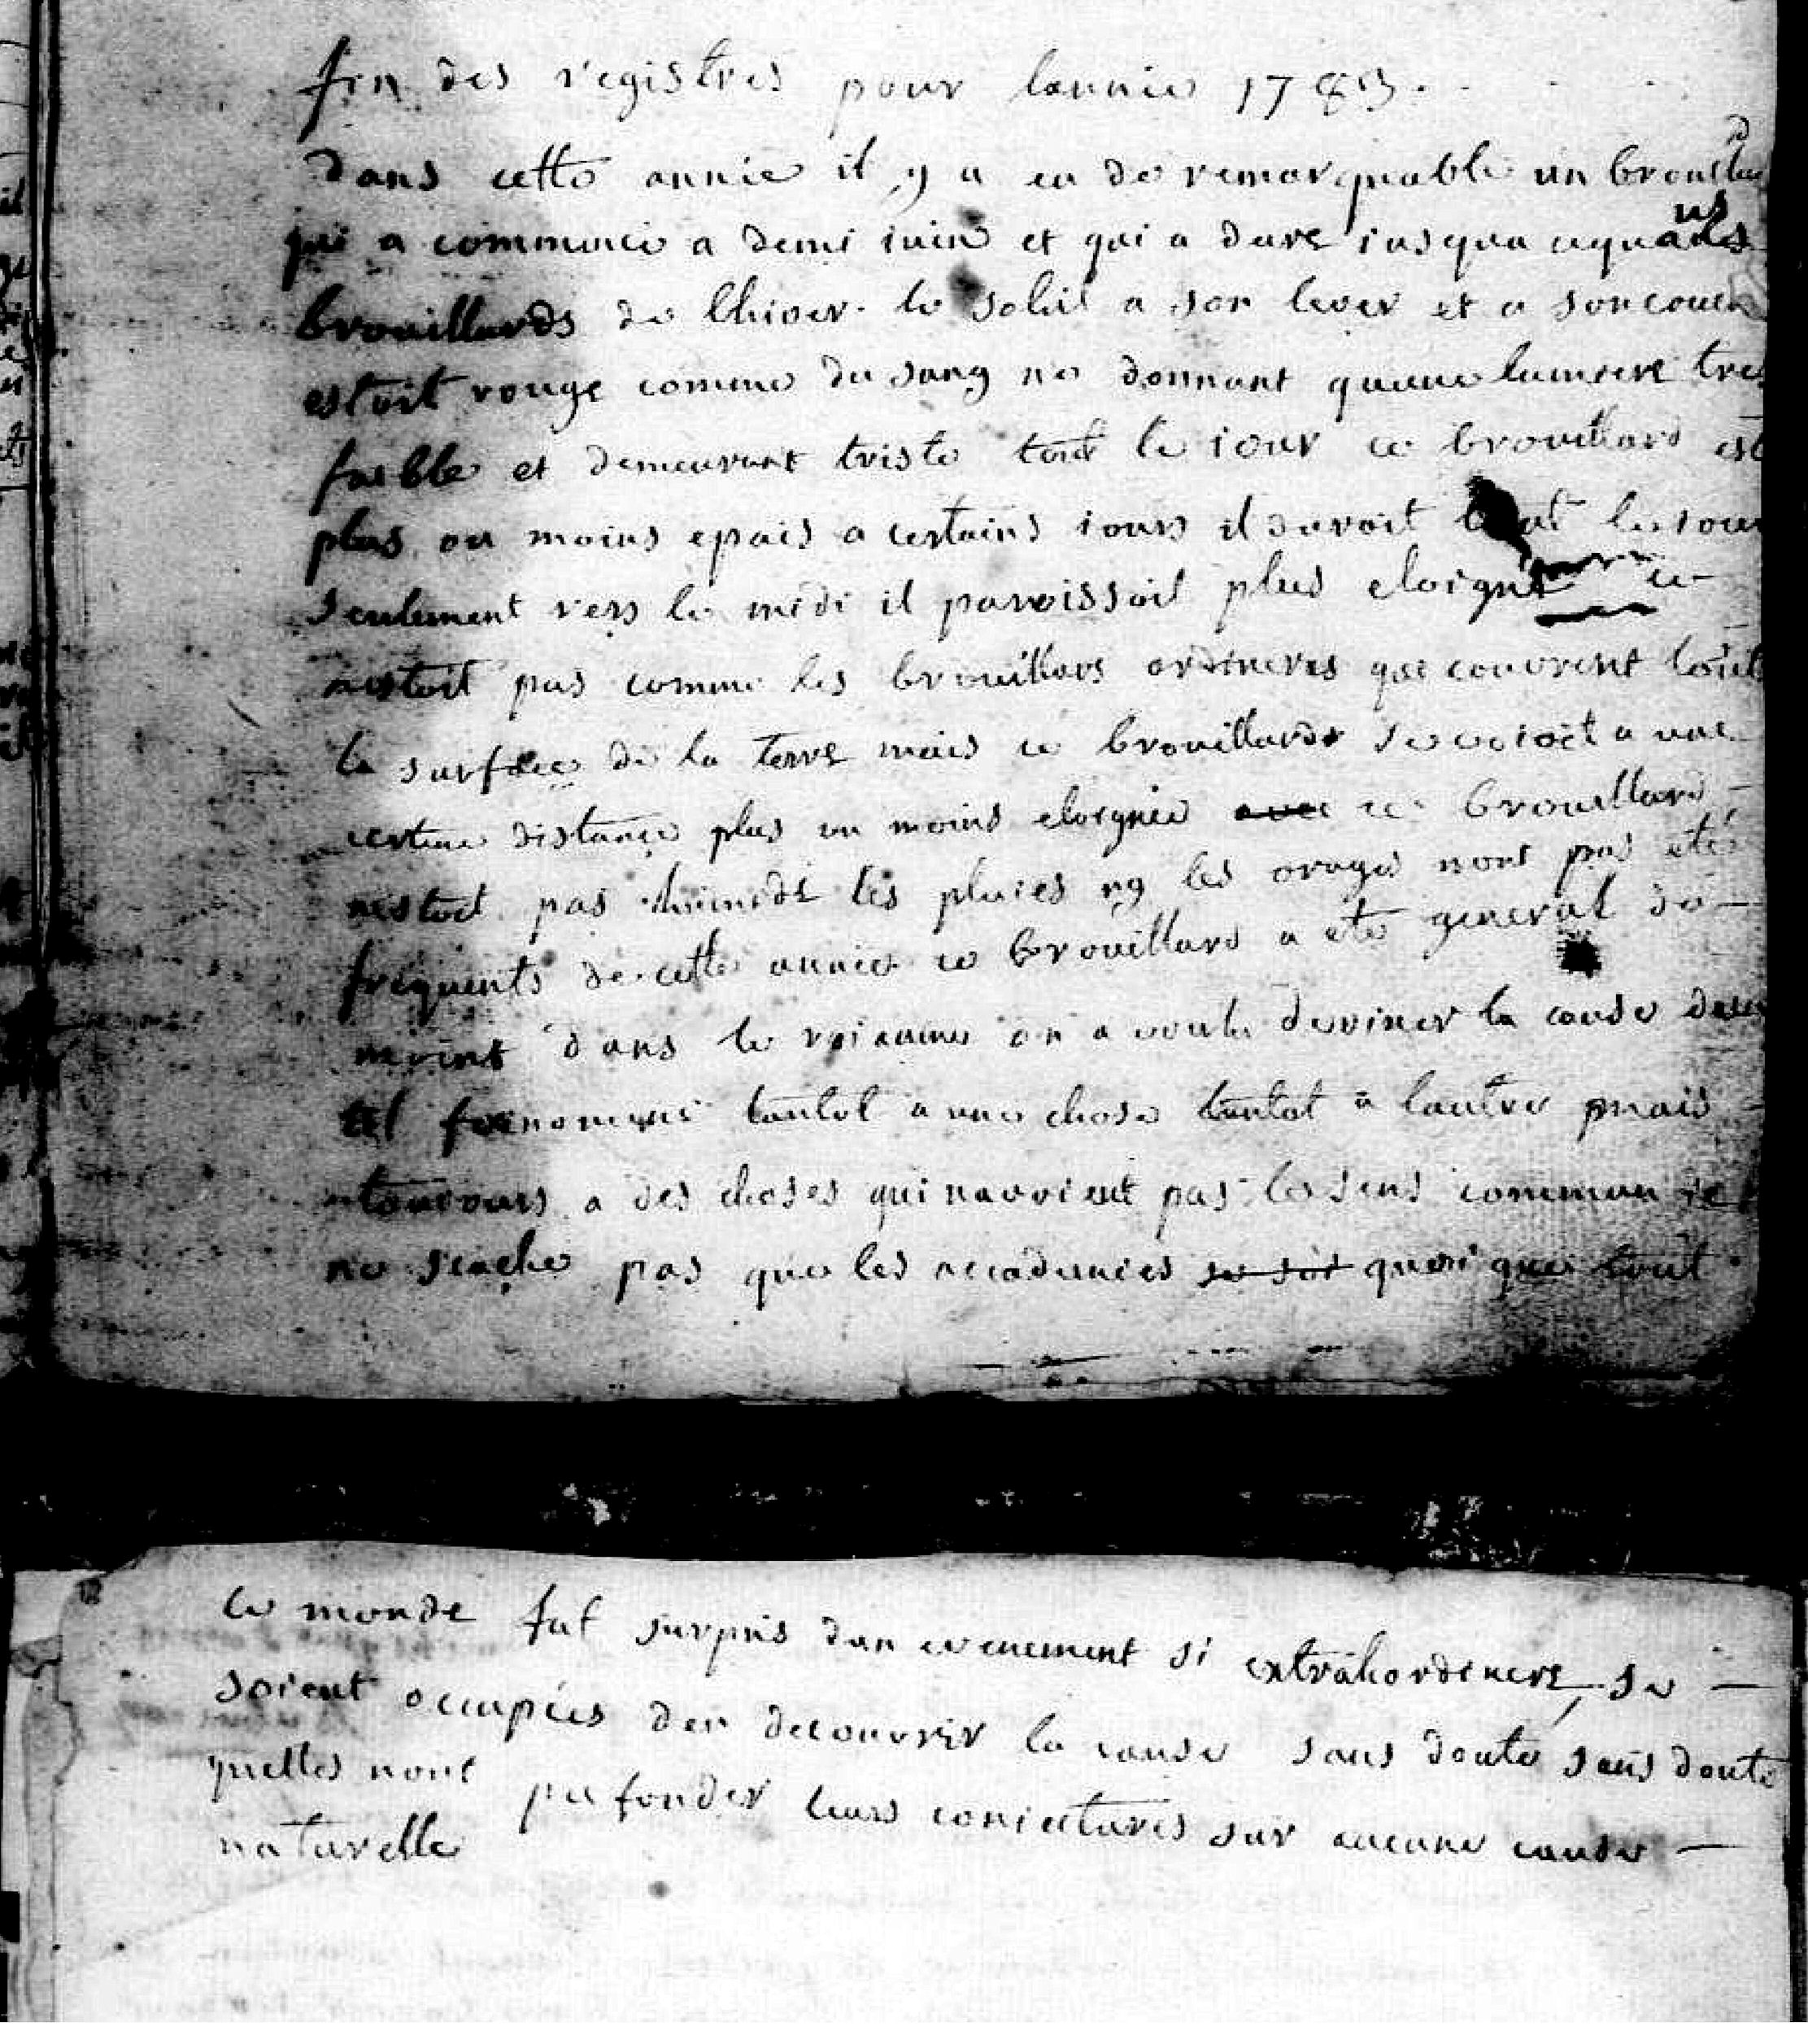 fin des registres pour lannée 1783.
Dans cette année il y a eu de remarquable un brouillard
qui a commencé a demi iuin et qui a duré iusqua
brouillards de lhiver. le soleil a son lever et a son couch
estoit rouge comme du sang ne donnant quune lumiere tres
faible et demeurant triste tout le iour ce brouillard est
plus ou moins epais a certains iours il duroit tout le iour
seulement vers le midi il paroissoit plus eloigné ce
nestoit pas comme les brouillars ordineres qui couvrent tout
la surface de la terre mais ce brouillards se voioit a une
certene distance plus ou moins eloignée avec ce brouillard
nestoit pas humide les pluies ny les orages nont pas eté
frequents de cette année ce brouillard a eté general du
moins dans le roiaume on a voulu deviner la cause dun
tel fenomene tantot a une chose tantot a lautre mais
toujours a des choses qui navoient pas le sens commun je
ne scache pas que les accademies se soi quoi que tout
le monde fut surpris dun evenement si extrahordenere, se
soient occupées den decouvrir la cause sans doute sans doute
quelles nont pu fonder leurs coniectures sur aucune cause
naturelle